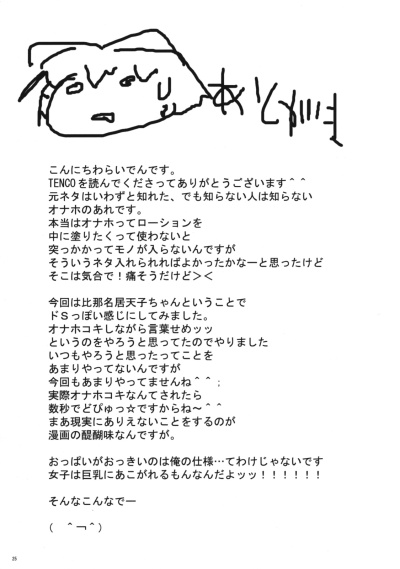 あとがき
こんにちわらいでんです。
TENCOを読んでくださってありがとうございます＾＾
元ネタはいわずと知れた、でも知らない人は知らない
オナホのあれです。
本当はオナホってローションを
中に塗りたくって使わないと
突っかかってモノが入らないんですが
そういうネタ入れられればよかったかなーと思ったけど
そこは気合で！痛そうだけど＞＜
今回は比那名居天子ちゃんということで
ドSっぽい感じにしてみました。
オナホコキしながら言葉せめッッ
というのをやろうと思ってたのでやりました
いつもやろうと思ったってことを
あまりやってないんですが
今回もあまりやってませんね＾＾；
実際オナホコキなんてされたら
数秒でどぴゅっ☆ですからね～＾＾
まあ現実にありえないことをするのが
漫画の醍醐味なんですが。
おっぱいがおっきいのは俺の仕様…てわけじゃないです
女子は巨乳にあこがれるもんなんだよッッ！！！！！！
そんなこんなでー
（　＾￢＾）
25